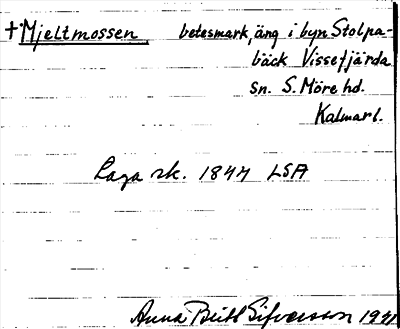 + Mjeltmossen betesmark, äng i byn Stolpa-
bäck Vissefjärda
sn. S. Möre hd.
Kalmar l.
Laga sk. 1847 LSA
Anna Britt Sifversson 1971